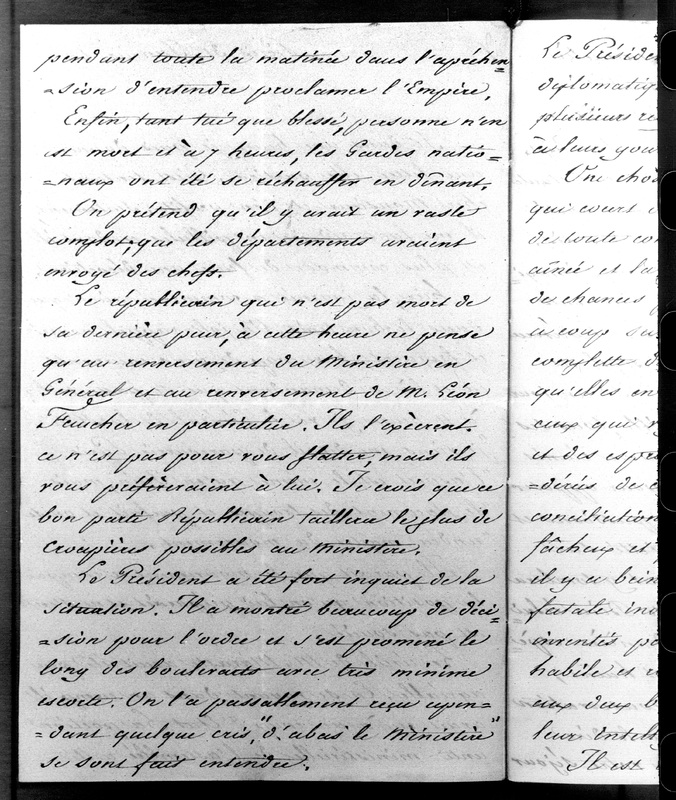 pendant toute la matinée dans l'apréhen=
=sion d'entendre proclamer l'Empire.
Enfin, tant tué que blessé, personne n'en
est mort et à 7 heures, les Gardes natio=
=naux ont été se réchauffer en dînant.
On prétend qu'il y avait un vaste
complot, que les départements avaient
envoyé des chefs.
Le républicain qui n'est pas mort de
sa dernière peur, à cette heure ne pense
qu'au renversement du Ministère en
Général et au renversement de M. Léon
Faucher en particulier. Ils l'exècrent.
ce n'est pas pour vous flatter, mais ils
vous préfèreraient à lui. Je crois que ce
bon parti Républicain taillera le plus de
Croupières possibles au Ministère.
Le Président a été fort inquiet de la
situation. Il a montré beaucoup de déci=
=sion pour l'ordre et s'est promené le
long des boulevarts avec très minime
escorte. On l'a passablement reçu cepen=
=dant quelque cris, "d'abas le Ministère"
se sont fait entendre.
Le Présiden
diplomatiq
plusieurs re
à leurs gou
Une chos
qui court
de toute con
aînée et la
de chances
à coup su
complette d
qu'elles en
ceux qui
et des espri
=dérés de c
conciliation
fâcheux et
il y a bein
fatale in
inventés p
habile et
aux deux b
leur intel
Il est